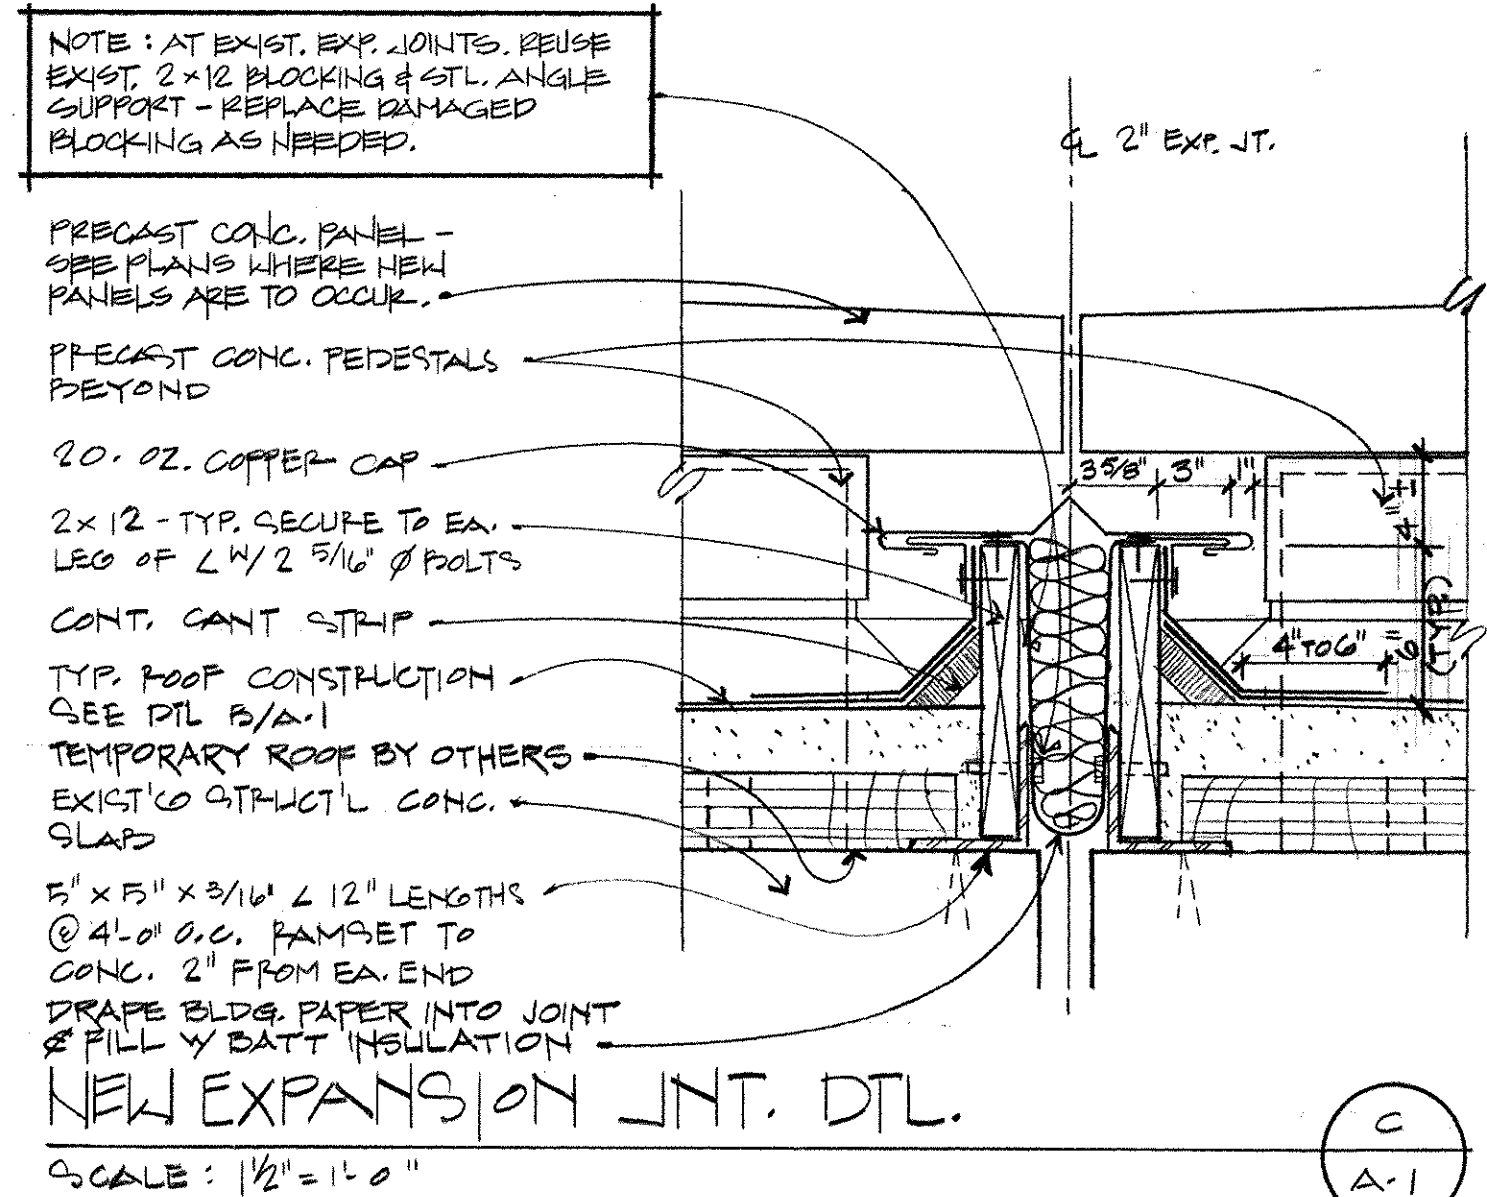 NOTE : AT EXIST. EXP. JOINTS. REUSE
EXIST. 2 x 12 BLOCKING & STL. ANGLE
SUPPORT - REPLACE DAMAGED
BLOCKING AS NEEDED.
℄ 2" EXP. JT.
PRECAST CONC. PANEL -
SEE PLANS WHERE NEW
PANELS ARE TO OCCUR.
PRECAST CONC. PEDESTALS
BEYOND
20. OZ. COPPER CAP
3 5/8" 3" 1"
2 x 12 - TYP. SECURE TO EA.
LEG OF ∠ W/ 2 5/16" Ø BOLTS
4" ±
CONT. CANT STRIP
4" TO 6"
6" (TYP.)
TYP. ROOF CONSTRUCTION
SEE DTL B/A-1
TEMPORARY ROOF BY OTHERS
EXIST'G STRUCT'L CONC.
SLAB
5" x 5" x 3/16" ∠ 12" LENGTHS
@ 4'-0" O.C. RAMSET TO
CONC. 2" FROM EA. END
DRAPE BLDG. PAPER INTO JOINT
& FILL W/ BATT INSULATION
NEW EXPANSION JNT. DTL.
SCALE : 1 1/2" = 1'-0"
C
A-1